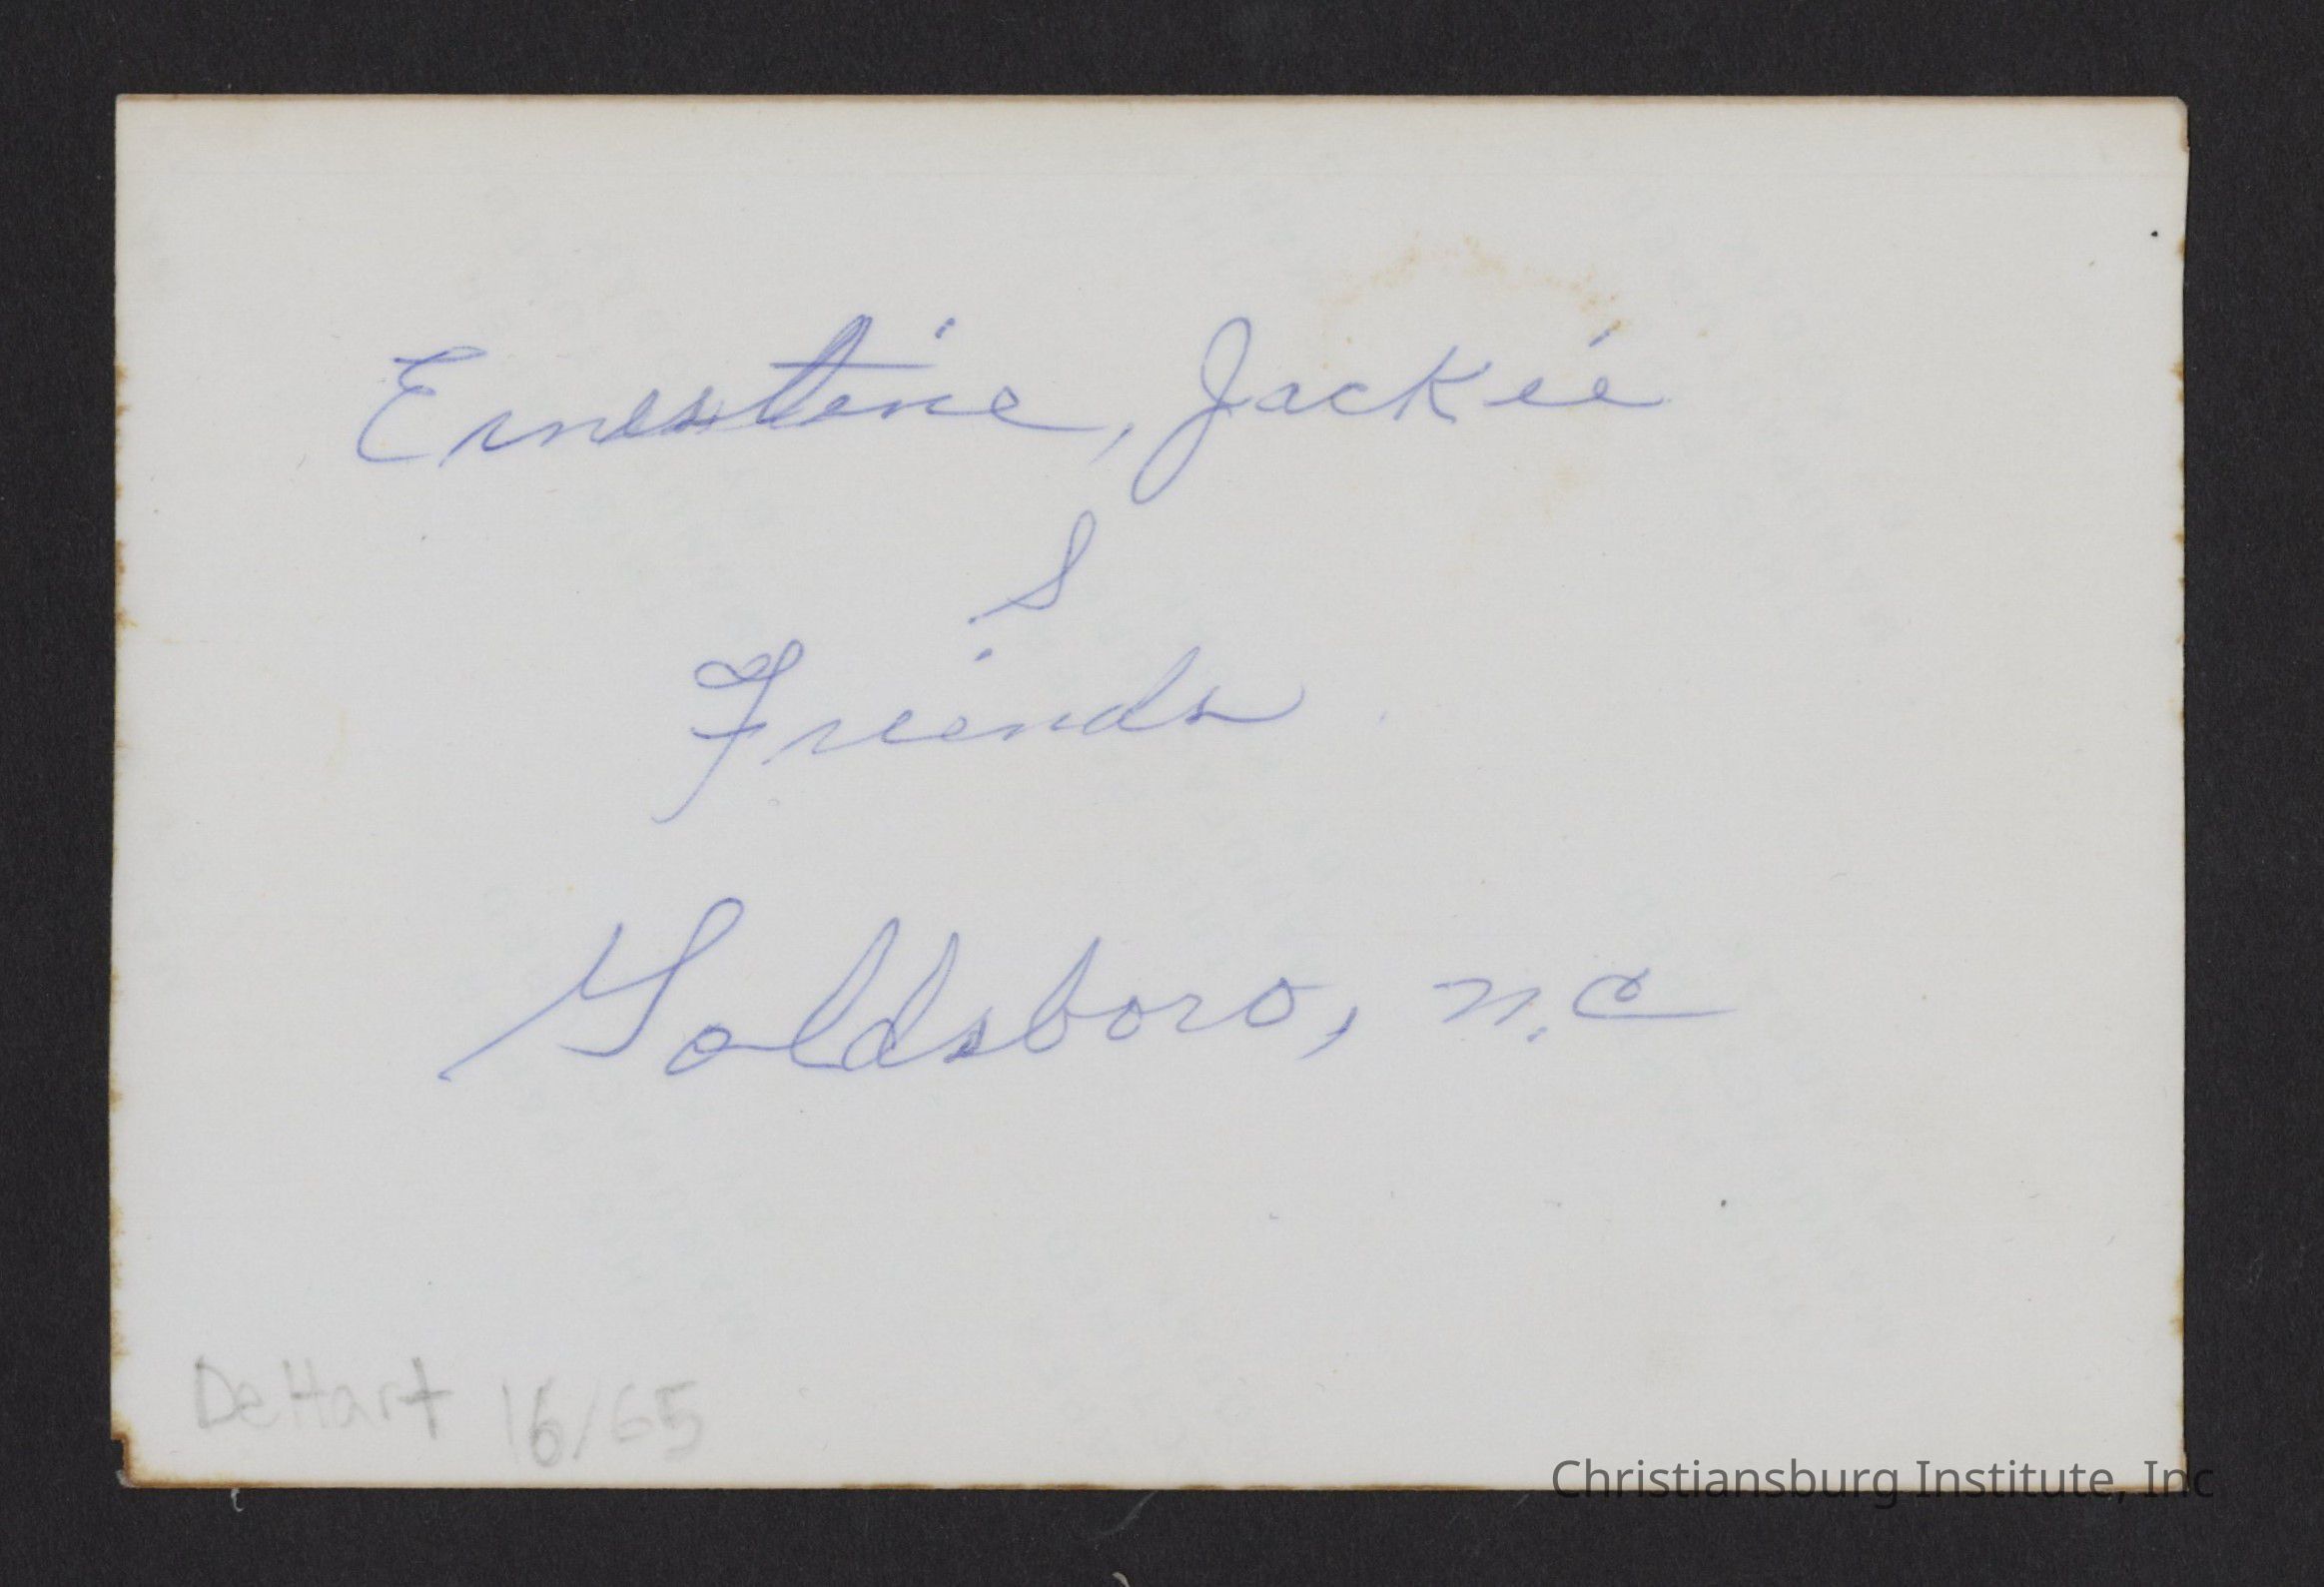 Ernestine, Jackie
&
Friends
Goldsboro, N.C
DeHart 16/65
Christiansburg Institute, Inc